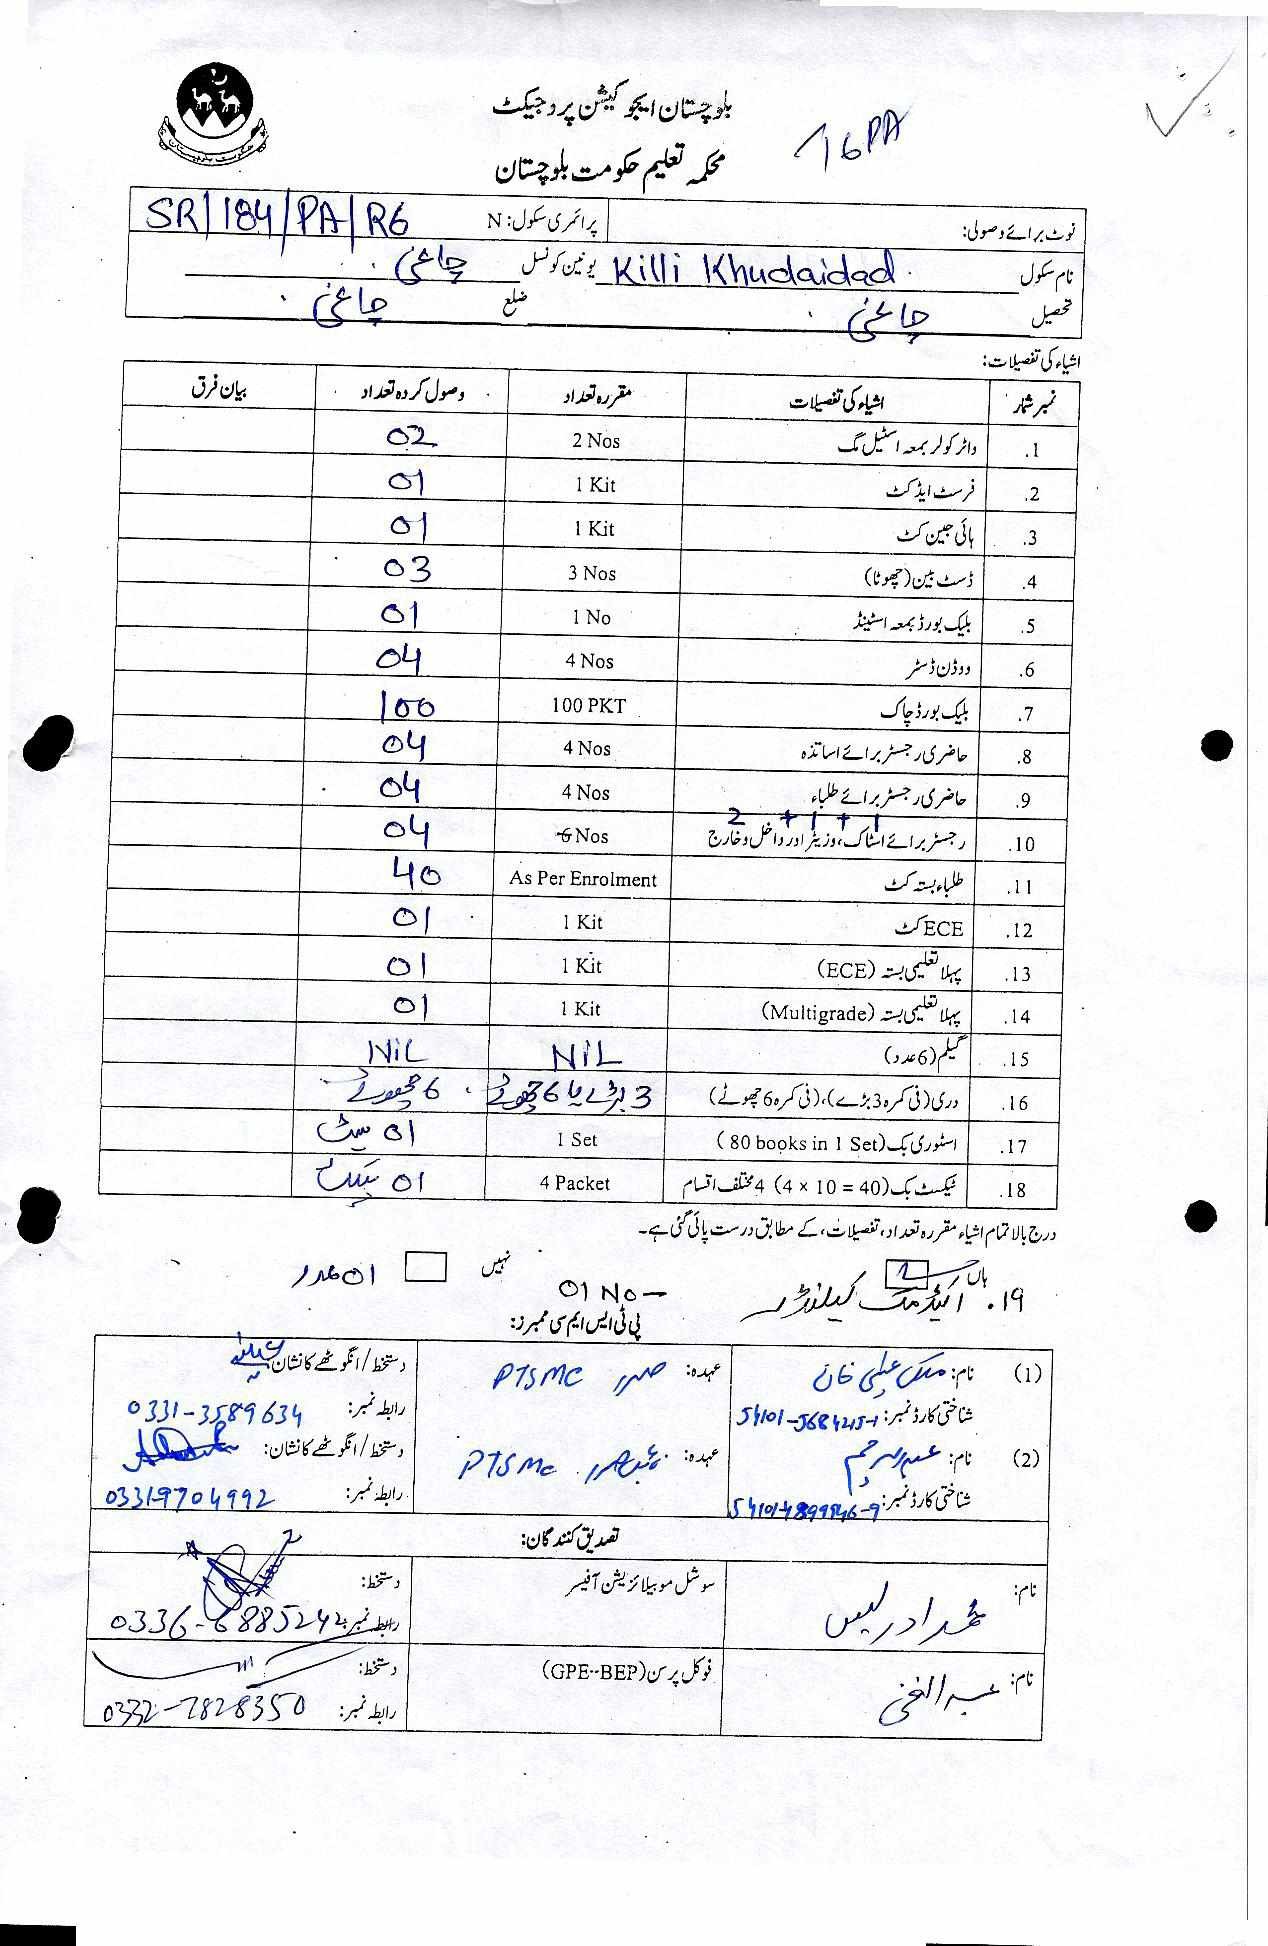 بلوچستان ایجوکیشن پروجیکٹ
محکمہ تعلیم حکومت بلوچستان
16 PA
نوٹ برائے وصولی: پرائمری سکول: N SR/184/PA/R6
نام سکول Killi Khudaidad یونین کونسل چاغی
تحصیل چاغی ضلع چاغی
اشیاء کی تفصیلات:
نمبر شمار اشیاء کی تفصیلات مقررہ تعداد وصول کردہ تعداد بیان فرق
1. واٹر کولر بمعہ اسٹیل مگ 2 Nos 02
2. فرسٹ ایڈ کٹ 1 Kit 01
3. ہائی جین کٹ 1 Kit 01
4. ڈسٹ بین (چھوٹا) 3 Nos 03
5. بلیک بورڈ بمعہ اسٹینڈ 1 No 01
6. ووڈن ڈسٹر 4 Nos 04
7. بلیک بورڈ چاک 100 PKT 100
8. حاضری رجسٹر برائے اساتذہ 4 Nos 04
9. حاضری رجسٹر برائے طلباء 4 Nos 04
2 + 1 + 1
10. رجسٹر برائے اسٹاک، وزیٹر اور داخل و خارج 6 Nos 04
11. طلباء بستہ کٹ As Per Enrolment 40
12. ECE کٹ 1 Kit 01
13. پہلا تعلیمی بستہ (ECE) 1 Kit 01
14. پہلا تعلیمی بستہ (Multigrade) 1 Kit 01
15. گلیم (6 عدد) NIL NIL
16. دری (فی کمرہ 3 بڑے)، (فی کمرہ 6 چھوٹے) 3 بڑے یا 6 چھوٹے 6 چھوٹے
17. اسٹوری بک (80 books in 1 Set) 1 Set 01 سیٹ
18. ٹیکسٹ بک (4 x 10 = 40) 4 مختلف اقسام 4 Packet 01 پیکٹ
درج بالا تمام اشیاء مقررہ تعداد، تفصیلات، کے مطابق درست پائی گئی ہے۔
ہاں نہیں
۱۹. اکیڈمک کیلنڈر 01 No 01 عدد
پی ٹی ایس ایم سی ممبرز:
(1) نام: ملک علی خان عہدہ: صدر PTSMC دستخط/انگوٹھے کا نشان:
شناختی کارڈ نمبر: رابطہ نمبر: 0331-3589634
(2) نام: عبدالرحیم عہدہ: نائب صدر PTSMC دستخط/انگوٹھے کا نشان:
شناختی کارڈ نمبر: رابطہ نمبر: 03319704992
تصدیق کنندگان:
نام: محمد ادریس سوشل موبیلائزیشن آفیسر دستخط:
رابطہ نمبر: 0336-6885242
نام: عبدالغنی فوکل پرسن (GPE--BEP) دستخط:
رابطہ نمبر: 0332-7828350